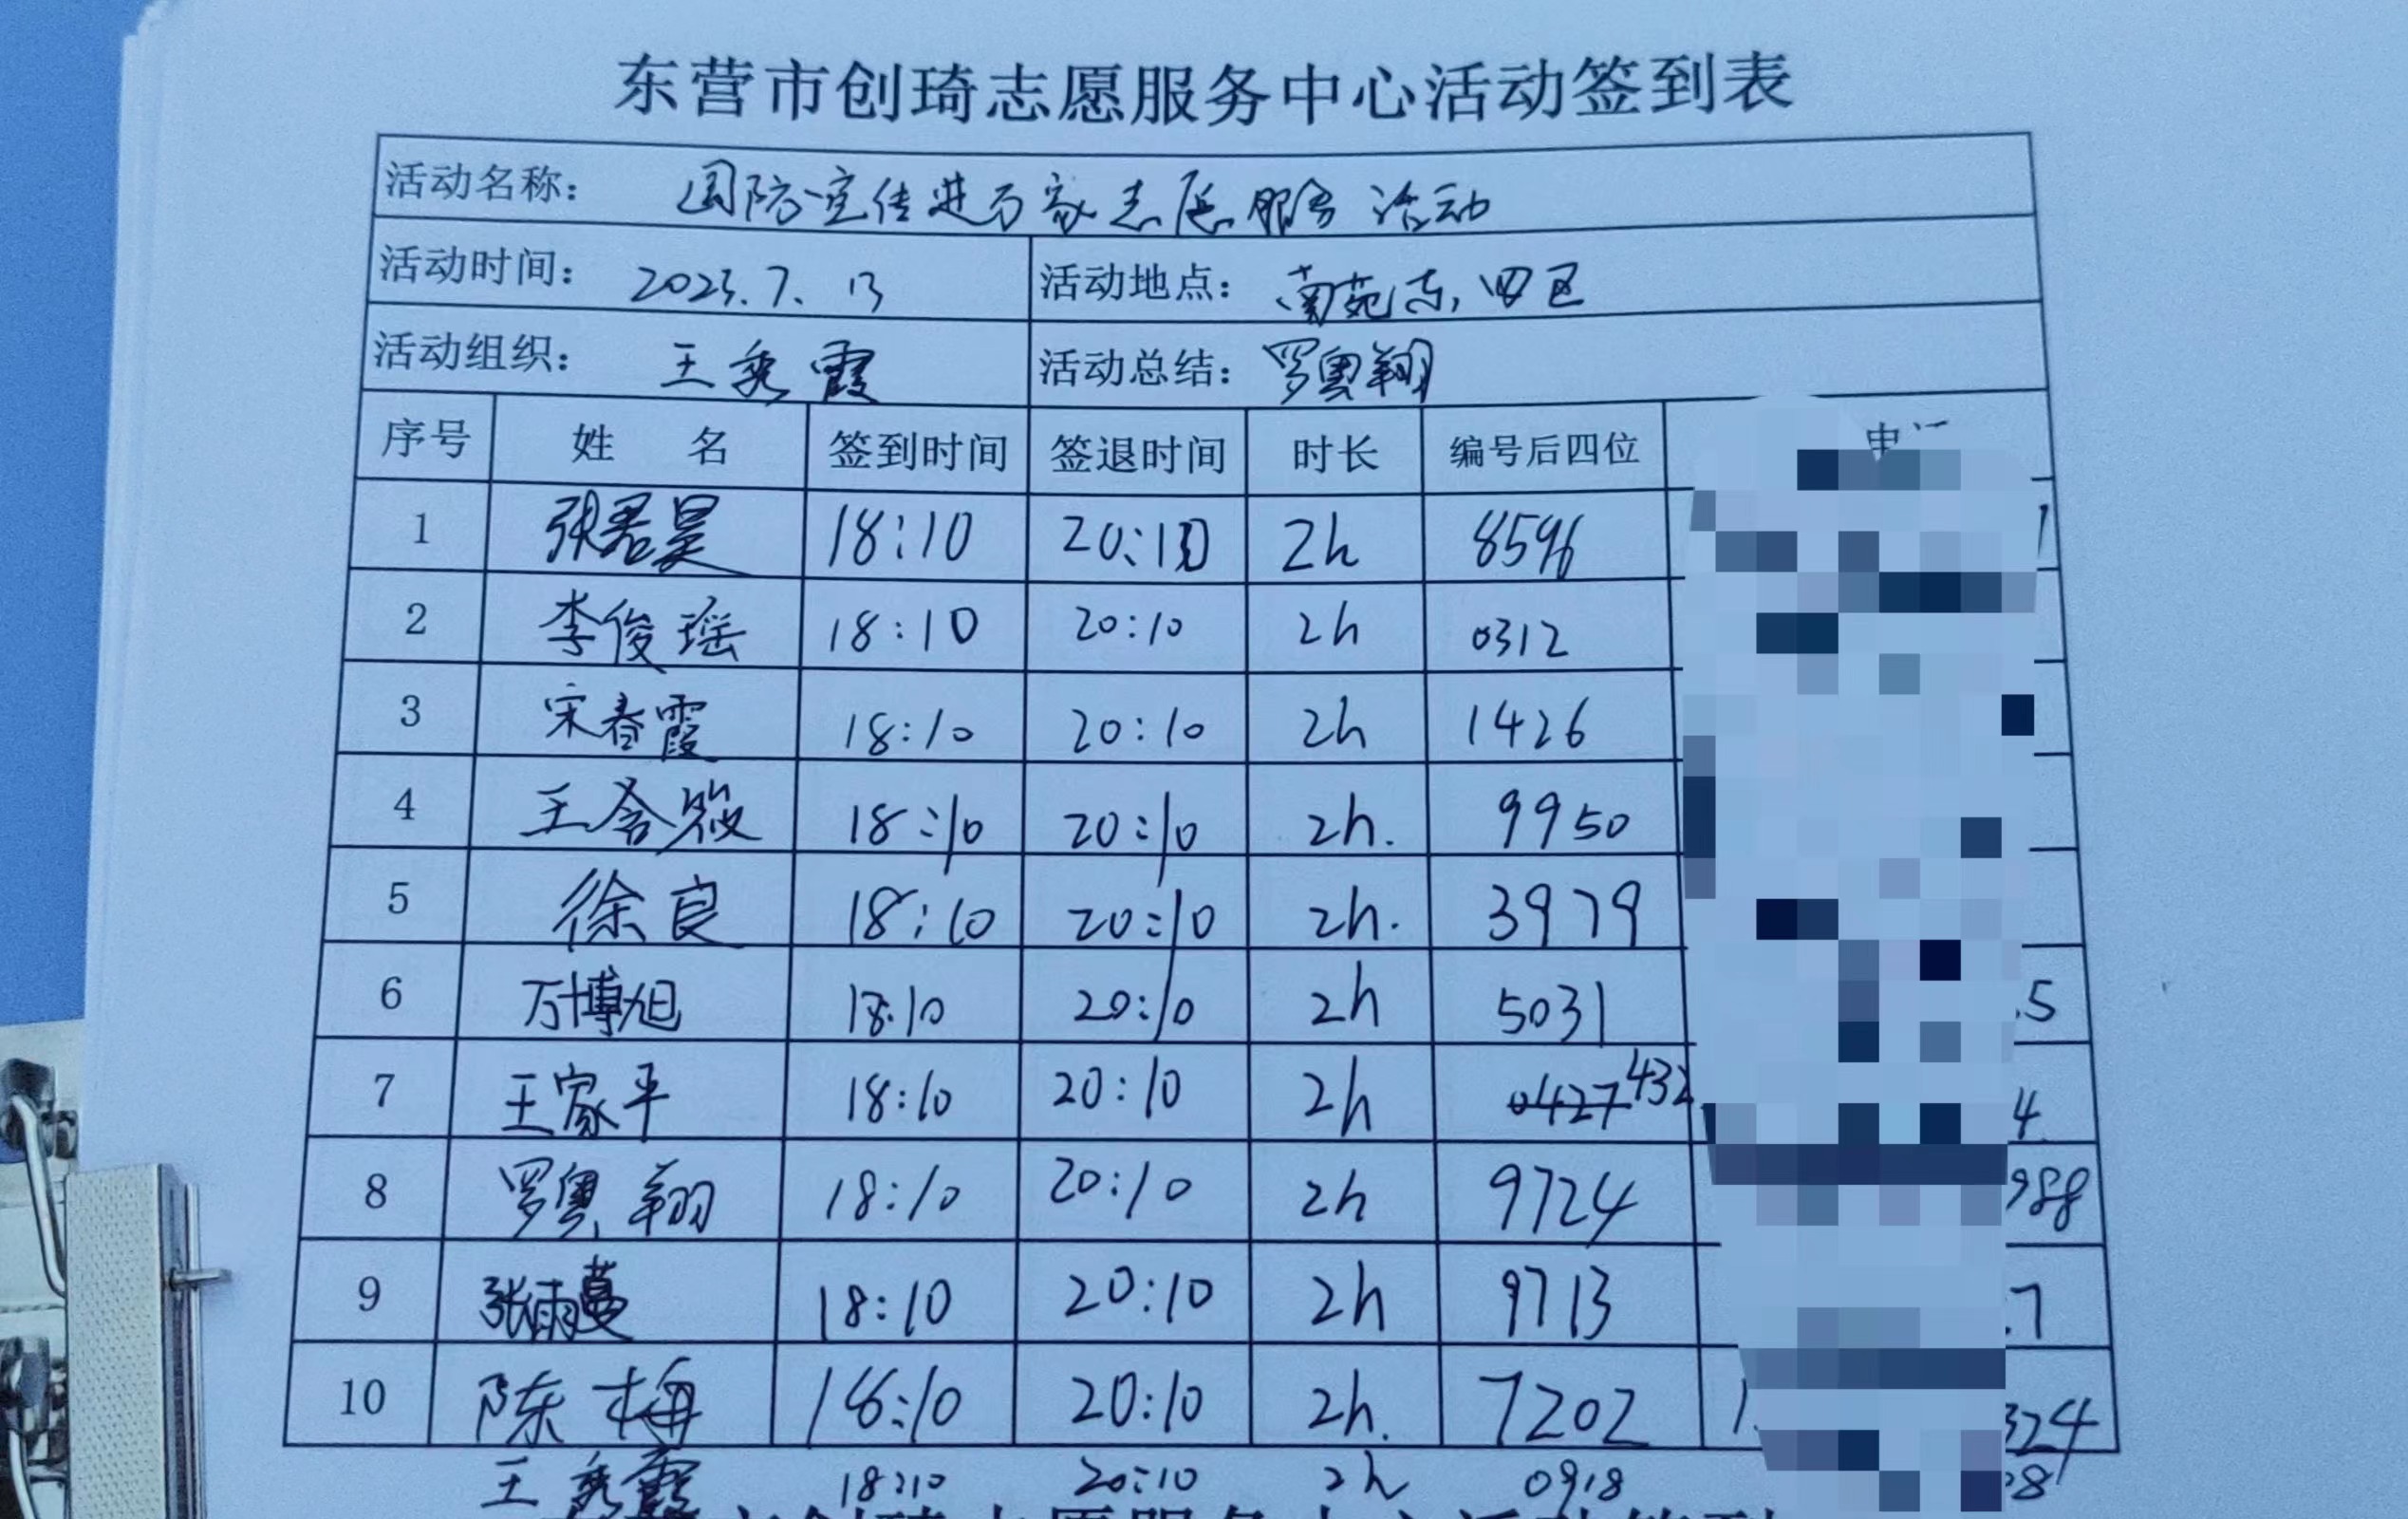 东营市创琦志愿服务中心活动签到表
活动名称： 国防宣传进万家志愿服务活动
活动时间： 2023.7.13 活动地点： 南苑东，四区
活动组织： 王秀霞 活动总结： 罗奥翔
序号 姓 名 签到时间 签退时间 时长 编号后四位
1 张君昊 18:10 20:10 2h 8596
2 李俊瑶 18:10 20:10 2h 0312
3 宋春霞 18:10 20:10 2h 1426
4 王 18:10 20:10 2h. 9950
5 徐良 18:10 20:10 2h. 3979
6 万博旭 18:10 20:10 2h 5031 5
7 王家平 18:10 20:10 2h 0427 432 4
8 罗奥翔 18:10 20:10 2h 9724 988
9 张雨蔓 18:10 20:10 2h 9713 7
10 陈梅 18:10 20:10 2h. 7202 324
王秀霞 18:10 20:10 2h 0918 08